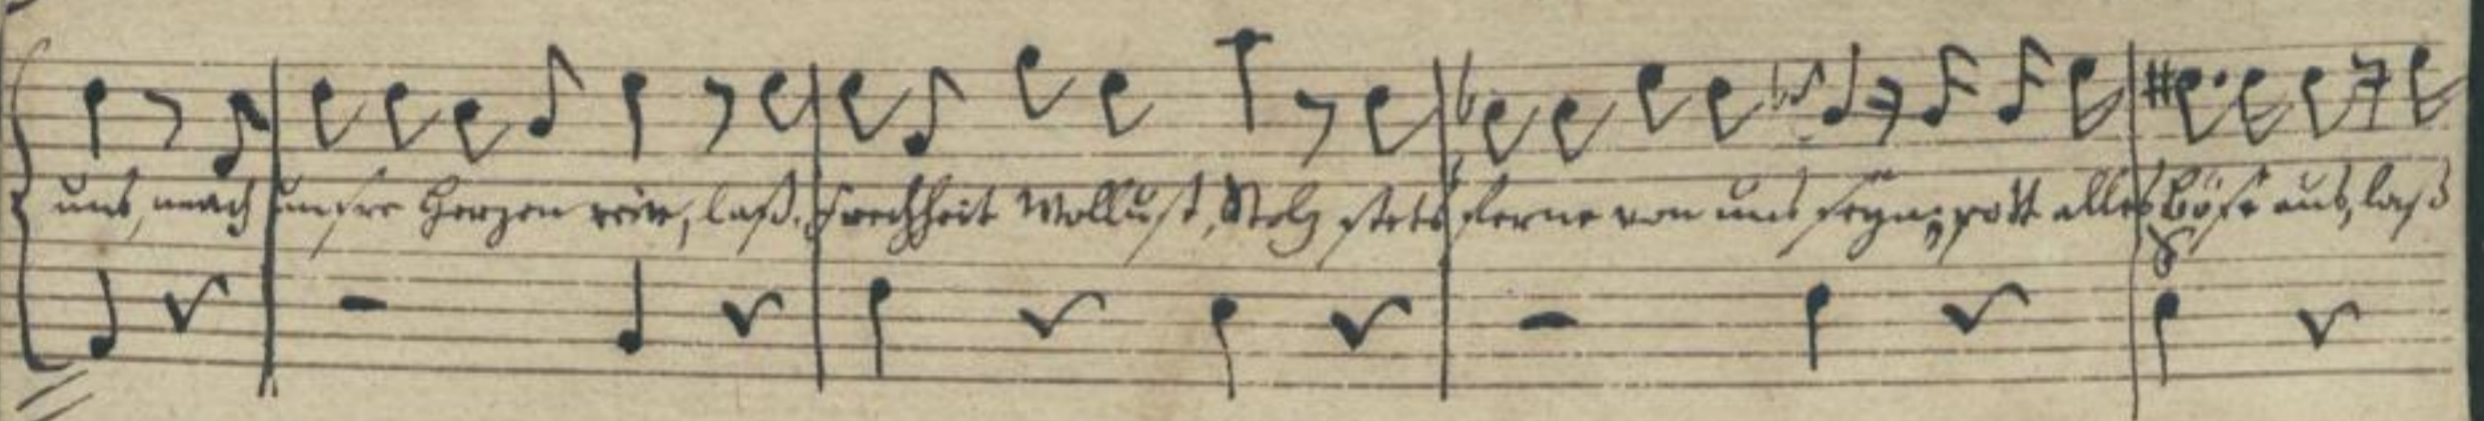 uns, mach unsre Herzen rein, laß Frechheit Wollust, Stolz stets ferne von uns seyn, rott alles Böse aus, laß